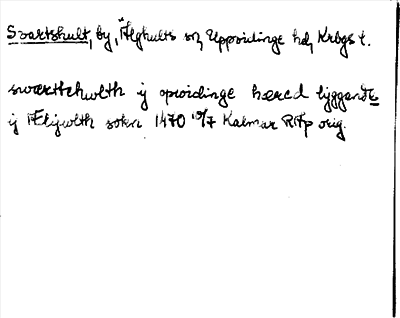 Svartshult, by, Älghults sn, Uppvidinge hd, Krbgs l.
swarttehwlth ij opvidinge hæred liggande
ij Elijwlth sokn 1470 19/7 Kalmar RAp orig.